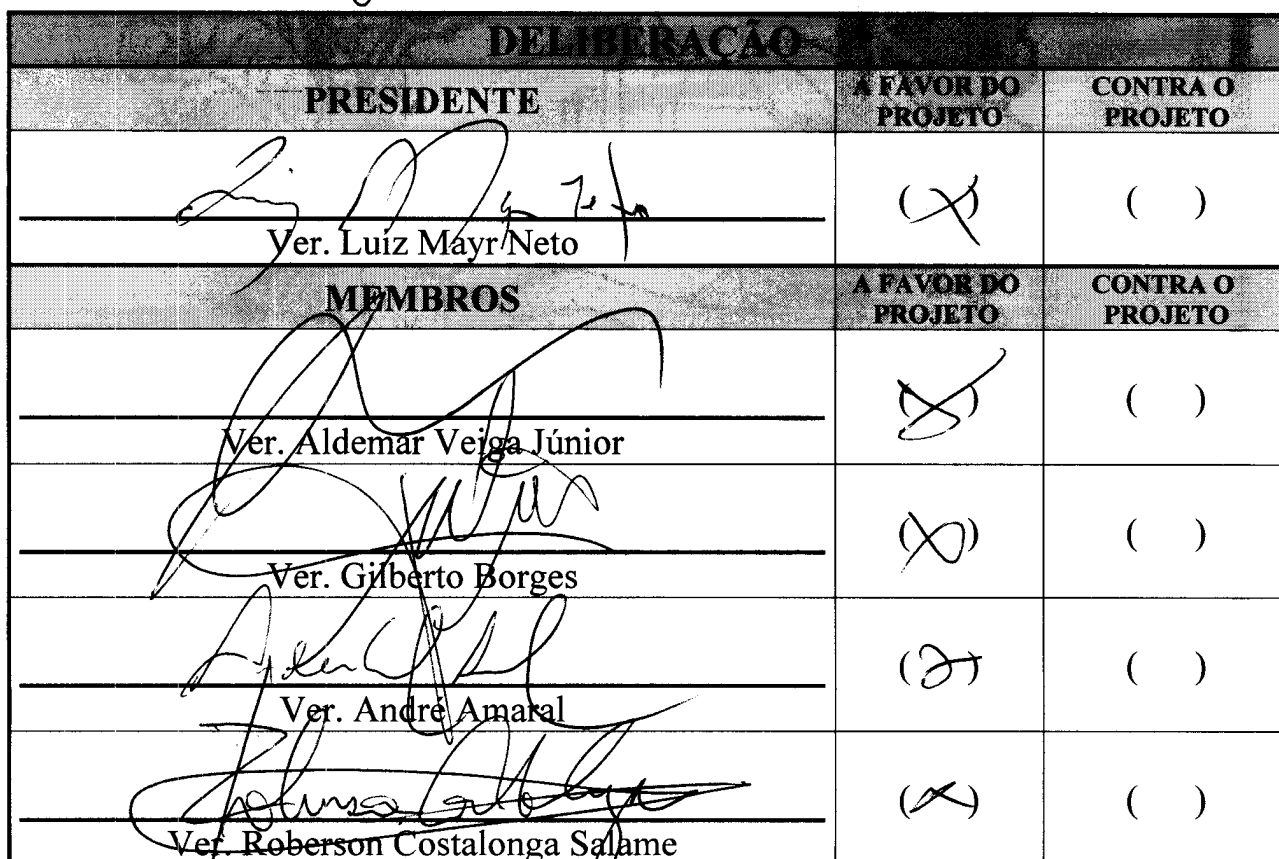 DELIBERAÇÃO
PRESIDENTE A FAVOR DO PROJETO CONTRA O PROJETO
( X ) ( )
Ver. Luiz Mayr Neto
MEMBROS A FAVOR DO PROJETO CONTRA O PROJETO
( X ) ( )
Ver. Aldemar Veiga Júnior
( X ) ( )
Ver. Gilberto Borges
( ) ( )
Ver. André Amaral
( X ) ( )
Ver. Roberson Costalonga Salame